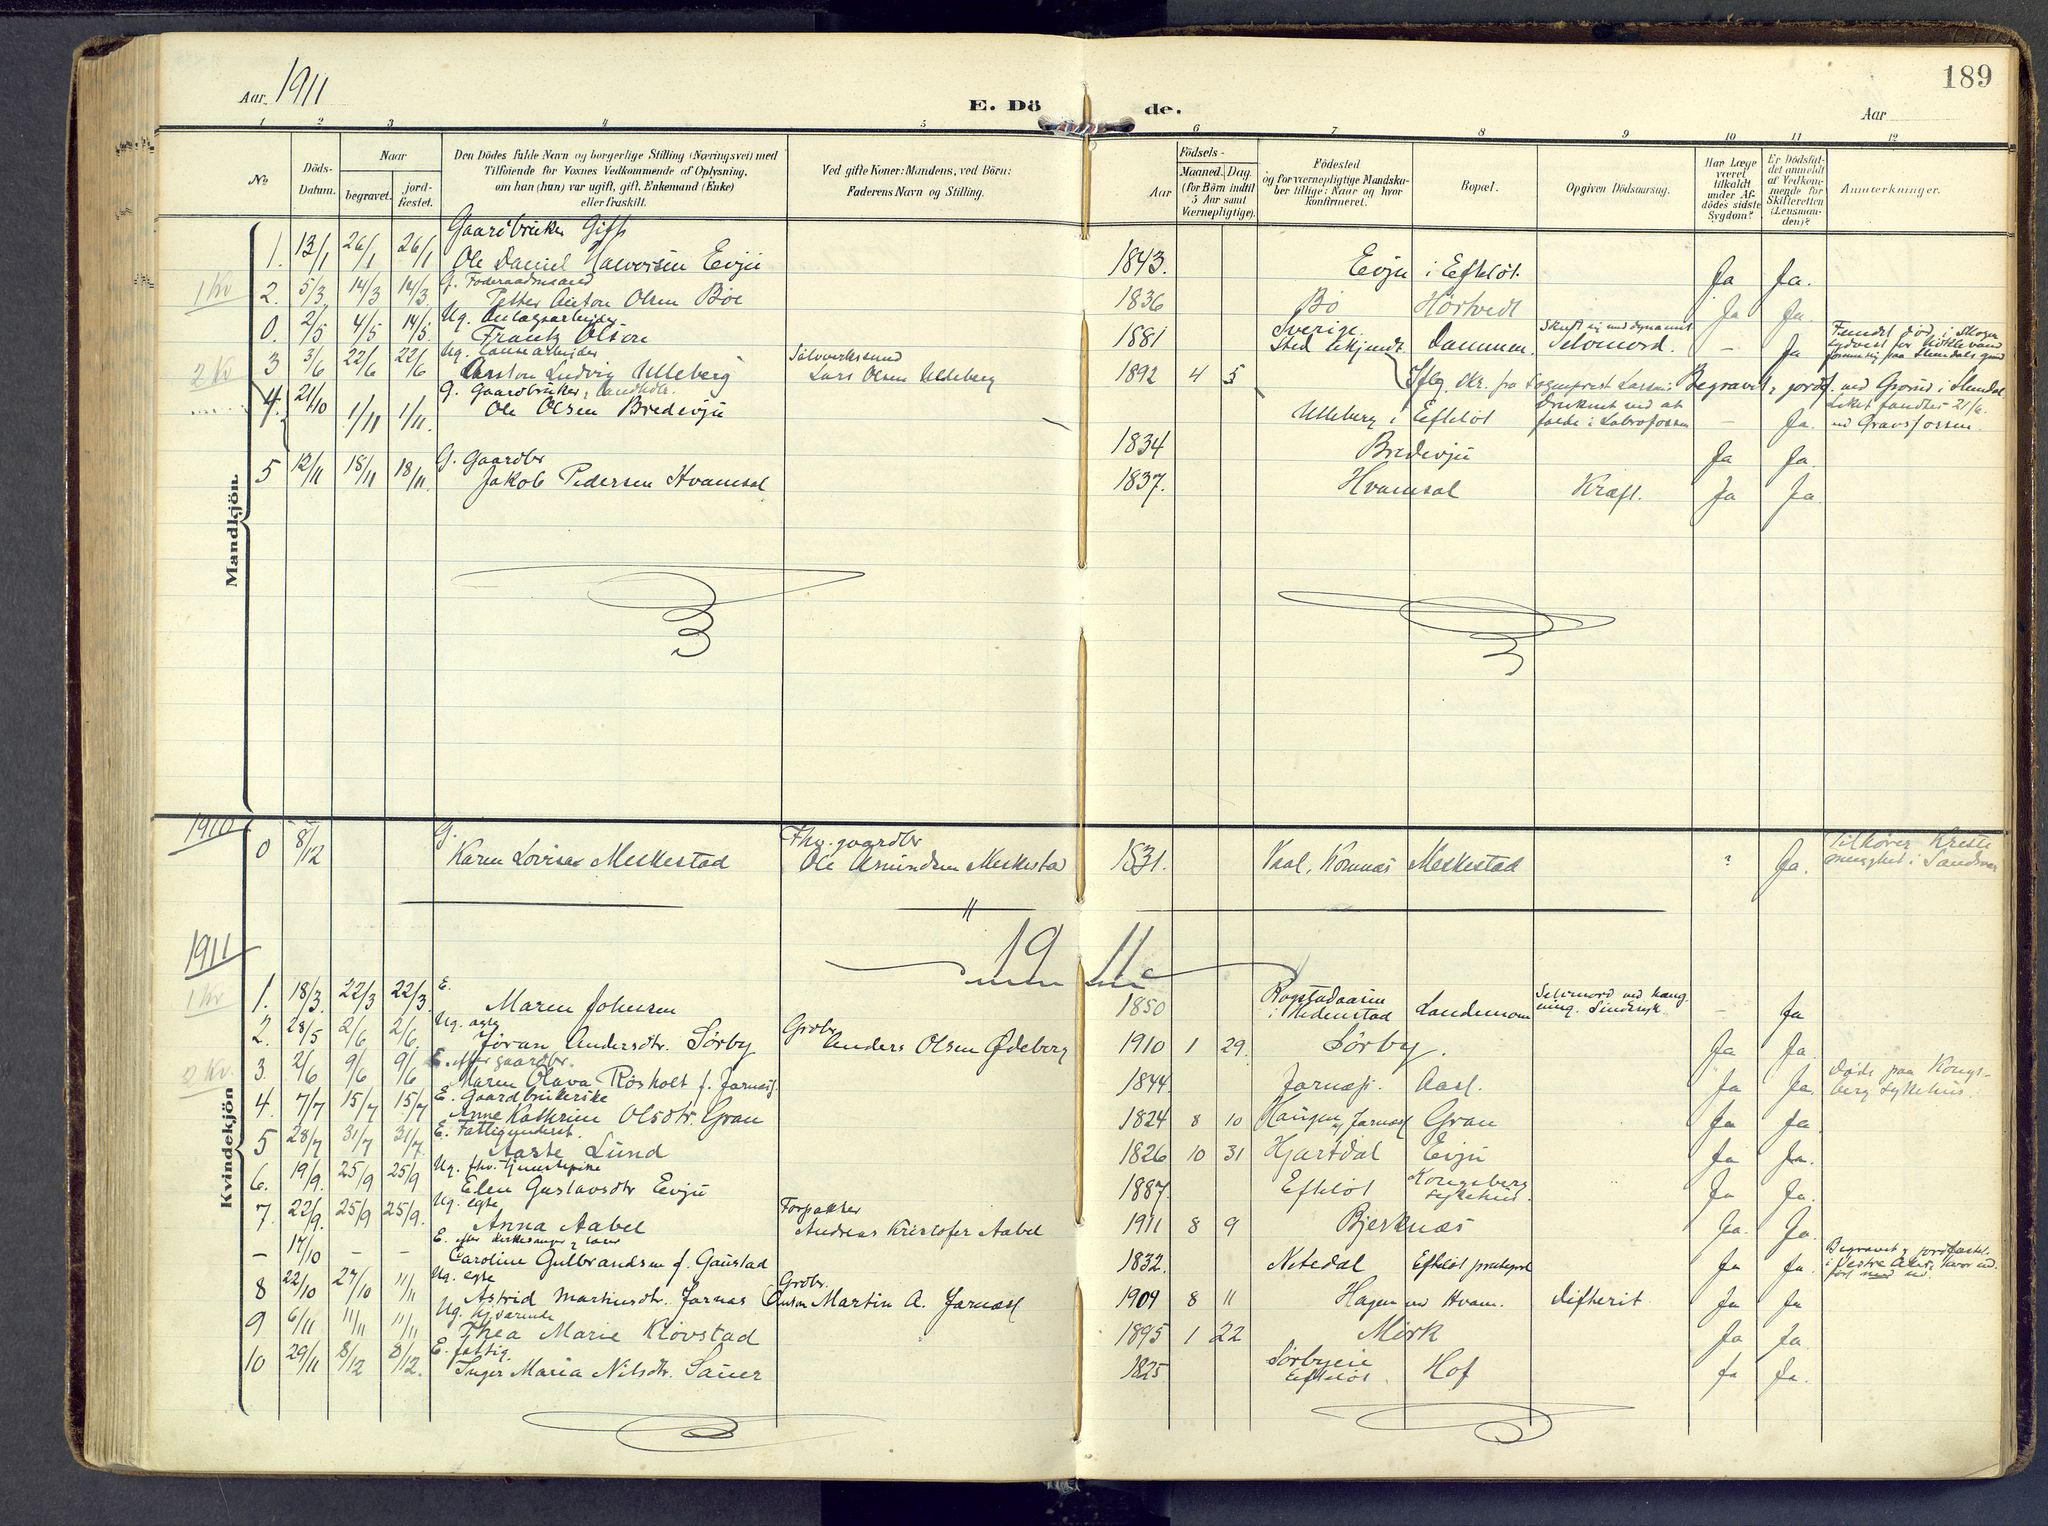 Aar 1911
E. Döde.
Aar
189
1 2 3 4 5 6 7 8 9 10 11 12
No
Döds-Datum.
Naar
begravet.
jord-fæstet.
Den Dödes fulde Navn og borgerlige Stilling (Næringsvei) med
Tilföiende for Voxnes Vedkommende af Oplysning,
om han (hun) var ugift, gift, Enkemand (Enke)
eller fraskilt.
Ved gifte Koner: Mandens, ved Börn:
Faderens Navn og Stilling.
Födsels-
Aar
Maaned. Dag.
(for Börn indtil
5 Aar samt
Værnepligtige).
Födested
og for værnepligtige Mandska-
ber tillige: Naar og hvor
konfirmeret.
Bopæl.
Opgiven Dödsaarsag.
Har Læge
været
tilkaldt
under Af-
dödes sidste
Sygdom?
Er Dödsfal-
det anmeldt
af Vedkom-
mende for
Skifteretten
(Lensman-
den)?
Anmærkninger.
Mandkjön.
Gaardbruker Gift
1. 13/1 26/1 26/1 Ole Daniel Halvorsen Evju 1843. Evju i Efteløt. Ja Ja.
1 Kv
G. Føderaadmaand
2. 5/3 14/3 14/3 Petter Anton Olsen Bøe 1836 Bø Hørtvedt Ja Ja.
Ug. Anlægsarbejder
0. 2/5 4/5 14/5 Frantz Olson 1881 Sverige. Sted ukjendt. Dammen. Selvmord. – Ja
Fundet død i Skogen
2 Kv
Ug.
3 3/6 22/6 22/6 Carsten Ludvig Ulleberg
Lars Olsen Ulleberg 1892 4 5
Begravet
Ulleberg i Efteløt
Druknet ved at
falde i Labrofossen – Ja.
Liket fandtes 21/6
ved Gravsfossen.
G. Gaardbruker,
4. 21/10 1/11 1/11. Ole Olsen Bredevju 1834 Bredevju Ja Ja
G. Gaardbr
5 12/11 18/11 18/11. Jakob Pedersen Hvamsal 1837. Hvamsal Kræft. Ja Ja.
Kvindekjön
1910
G.
0 8/12 Karen Lovise Meskestad
Fhv. gaardbr
Ole Amundsen Meskestad 1831. Meskestad ? Ja.
Tilhører Kristi
menighet i Sandsvær
"
1911
1911
1 Kv
E.
1. 18/3 22/3 22/3. Maren Johnsen 1850
Rogstadaasen
i Hedenstad Landemoen
Selvmord ved hæng-
ning. Sindssyk. – Ja
Ug. egte
2. 28/5 2/6 2/6. Jøran Andersdtr. Sørby
Grdbr
Anders Olsen Ødeberg 1910 1 29. Sørby. Ja Ja.
2 Kv.
E. efter gaardbr.
3. 2/6 9/6 9/6 Maren Olava Røsholt f. Jarnæs. 1844 Jarnæs. Aasl. Ja Ja.
Døde paa Kongs-
berg sykehus.
E. Gaardbrukerske
4 7/7 15/7 15/7 Anne Kathrine Olsdtr. Gran 1824 8 10 Haugen u/ Jarnæs Gran Ja Ja.
E. Fattigunderst.
5 28/7 31/7 31/7. Aaste Lund 1826 10 31 Hjartdal Evju Ja Ja.
Ug. fhv. tjenestepike
6. 19/9. 25/9 25/9 Elen Gustavsdtr Evju 1887. Efteløt Kongsberg
sykehus. Ja Ja.
Ug. egte
7. 22/9. 25/9 25/9. Anna Aabel
Forpakter
Andreas Kristofer Aabel 1911 8 9 Bjerknæs Ja. Ja.
E. efter kirkesanger
– 17/10 – – Caroline Gulbrandsen f. Gaustad 1832. Nitedal Efteløt prestegard Ja Ja.
Begravet, jordfæstet
i Vestre Aker,
Ug. egte
8 22/10 27/10 "/11 Astrid Martinsdtr. Jarnæs
Grdbr.
Martin A. Jarnæs 1909 8 11 Hagen ved Hvam. Difterit Ja Ja
Ug. hj.værende
9 6/11 11/11 11/11. Thea Marie Kløvstad 1895 1 22 Mørk Ja Ja.
E. fattig.
10 29/11 8/12 8/12. Inger Maria Nilsdtr. Sauer 1825
Sørbyeie
Efteløt. Hof Ja Ja.